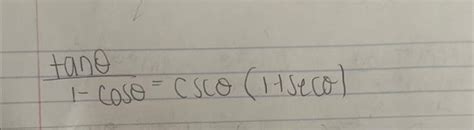 tanθ
1-cosθ = cscθ (1+secθ)